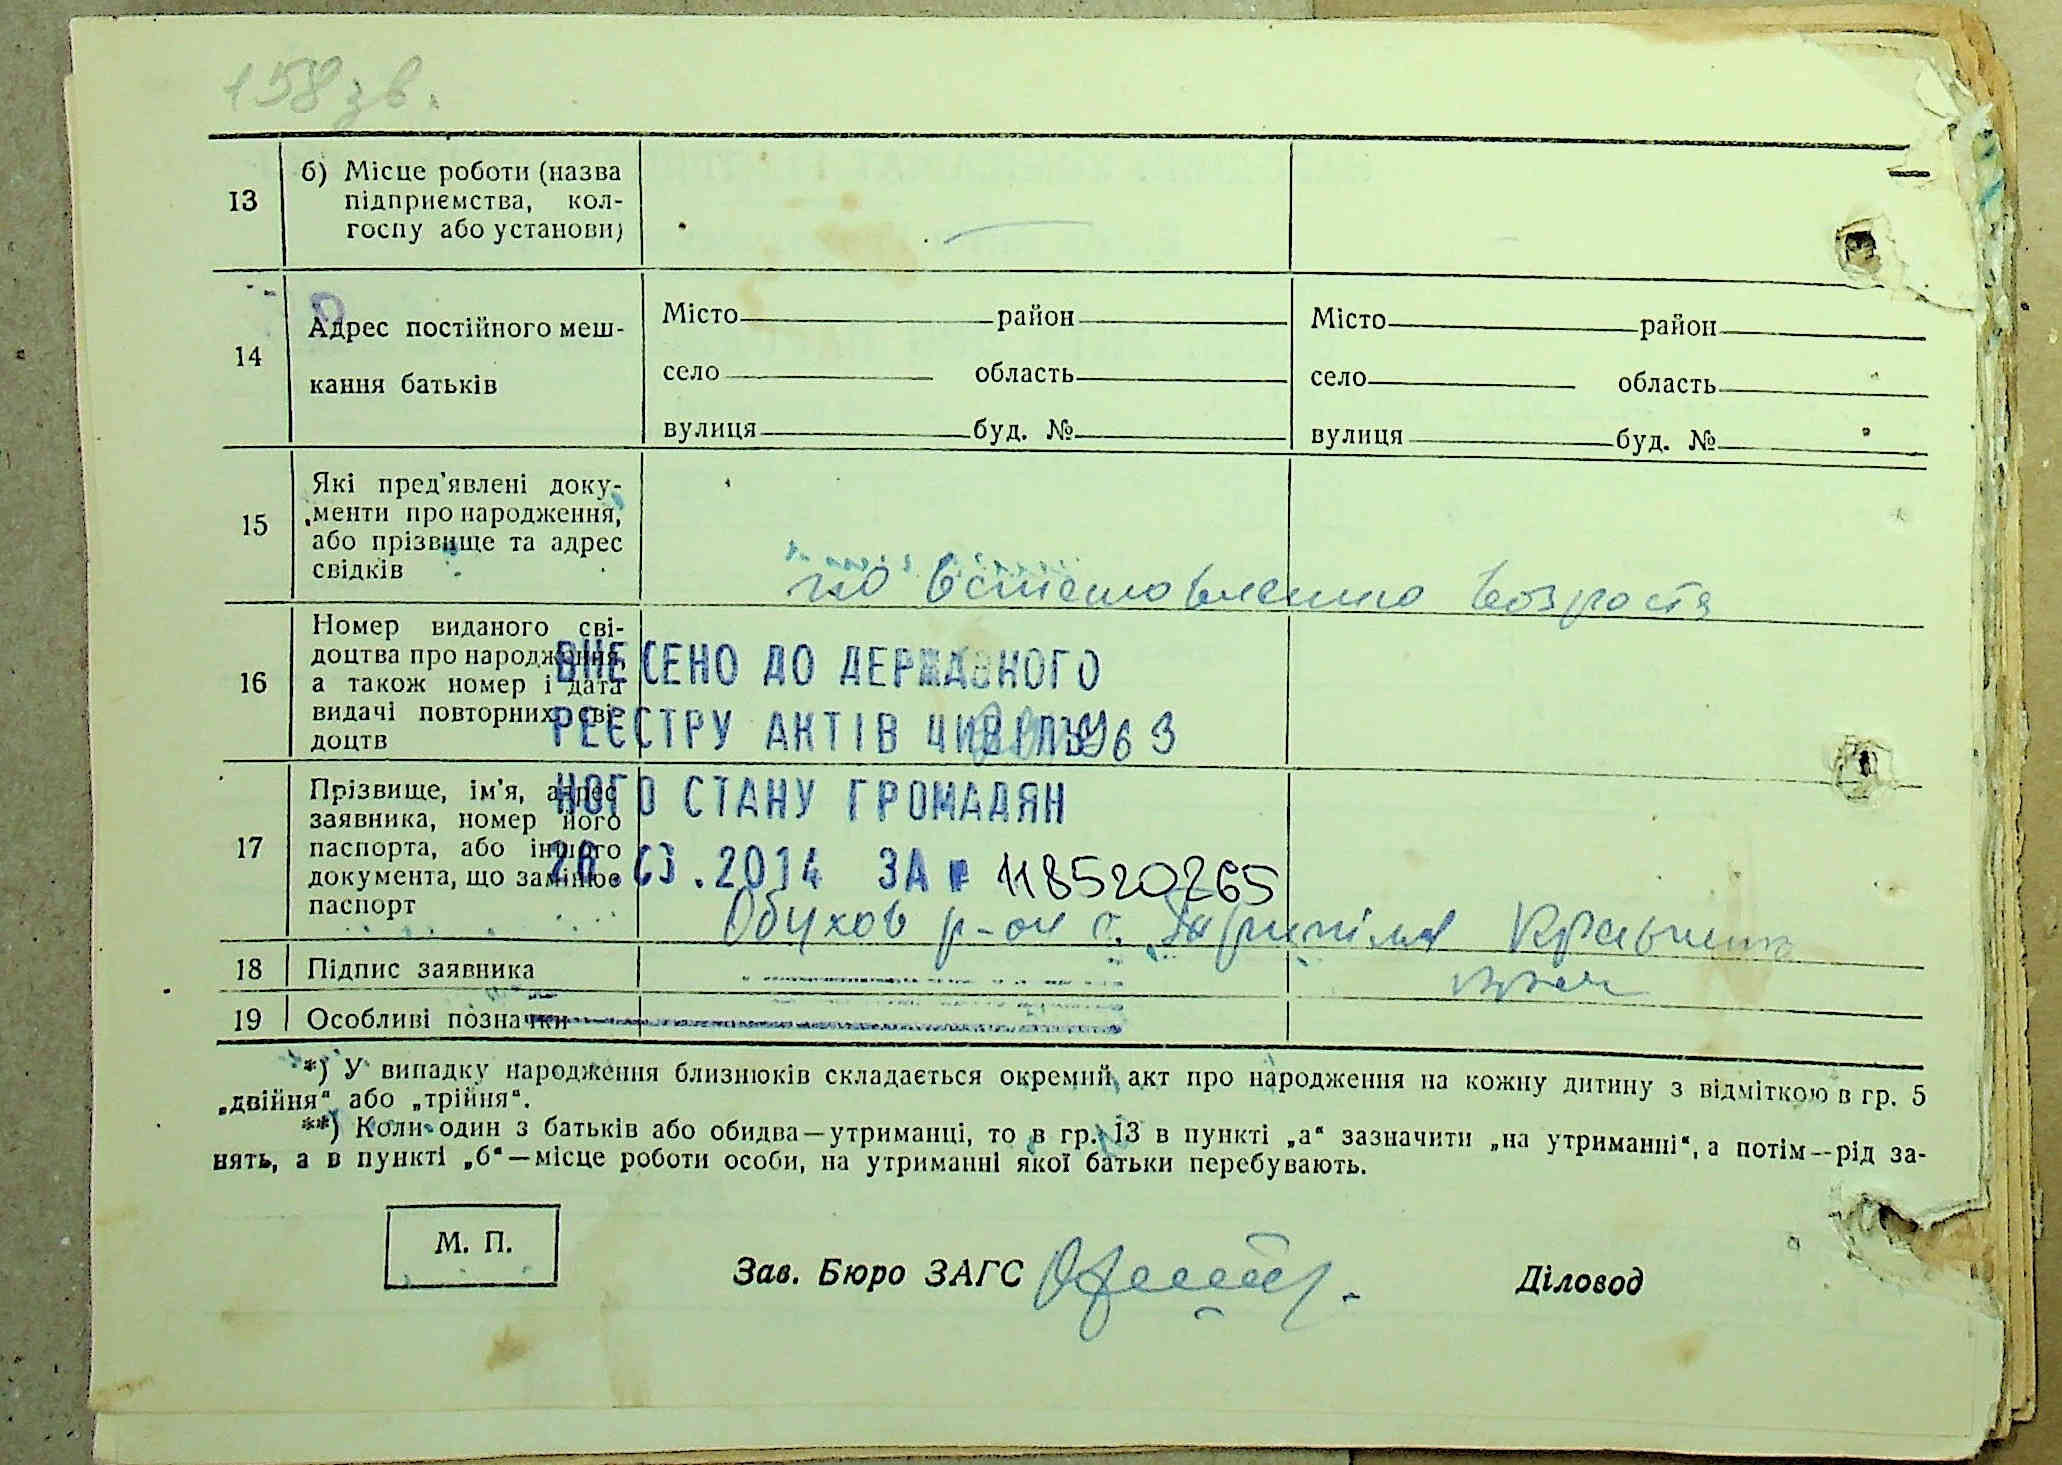 158 зв.
13
б) Місце роботи (назва
підприємства, кол-
госпу або установи)
14
Адрес постійного меш-
кання батьків
Місто район
село область
вулиця буд. №
Місто район
село область
вулиця буд. №
15
Які пред'явлені доку-
менти про народження,
або прізвище та адрес
свідків
по возроста
16
Номер виданого сві-
доцтва про народження,
а також номер і дата
видачі повторних сві-
доцтв
ВНЕСЕНО ДО ДЕРЖАВНОГО
РЕЄСТРУ АКТІВ ЦИВІЛЬ-
НОГО СТАНУ ГРОМАДЯН
2014 ЗА № 118520265
17
Прізвище, ім'я, адрес
заявника, номер його
паспорта, або іншого
документа, що замінює
паспорт
Обухов р-он с.
18
Підпис заявника
19
Особливі позначки
*) У випадку народження близнюків складається окремий акт про народження на кожну дитину з відміткою в гр. 5
„двійня“ або „трійня“.
**) Коли один з батьків або обидва—утриманці, то в гр. 13 в пункті „а“ зазначити „на утриманні“, а потім—рід за-
нять, а в пункті „б“—місце роботи особи, на утриманні якої батьки перебувають.
М. П.
Зав. Бюро ЗАГС
Діловод